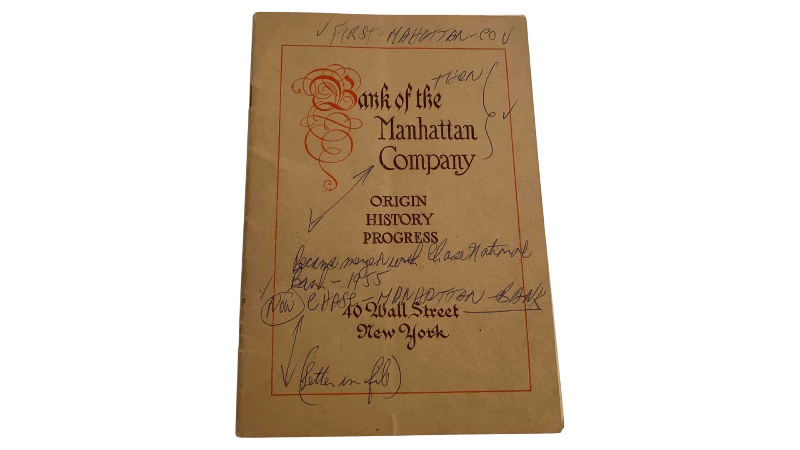 ✓ FIRST MAHATTAN-CO ✓
THEN
Bank of the
Manhattan
Company
ORIGIN
HISTORY
PROGRESS
Became merged with Chase National
Bank - 1955
Now CHASE-MANHATTAN BANK
40 Wall Street
New York
(letter in file)